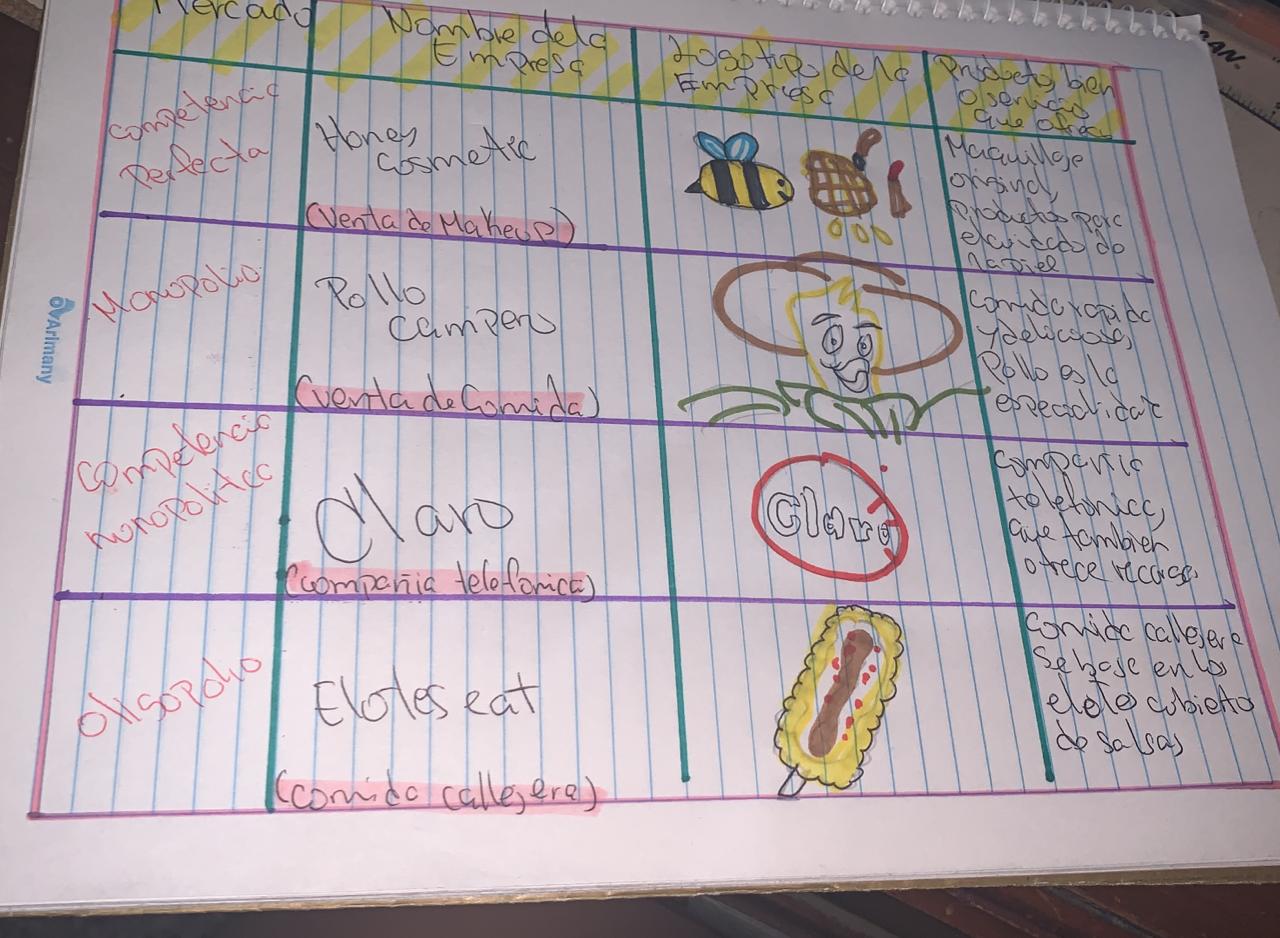 Mercado
Nombre dela
Empresa
Logotipo dela
Empresa
Producto, bien
o servicio
que ofrece
Competencia
Perfecta
Honey
cosmetic
(venta de Makeup)
Maquillaje
original,
Producto para
el cuidado de
la piel
Monopolio
Pollo
campero
(venta de Comida)
Comida rapida
y deliciosa,
Pollo es la
especialidad
Competencia
monopolitca
Claro
(compañia telefonica)
Claro
compañia
telefonica,
que tambien
ofrece recargas
Oligopolio
Elotes eat
(comida callejera)
Comida callejera
se base en los
elote cubierto
de salsas
Arimany